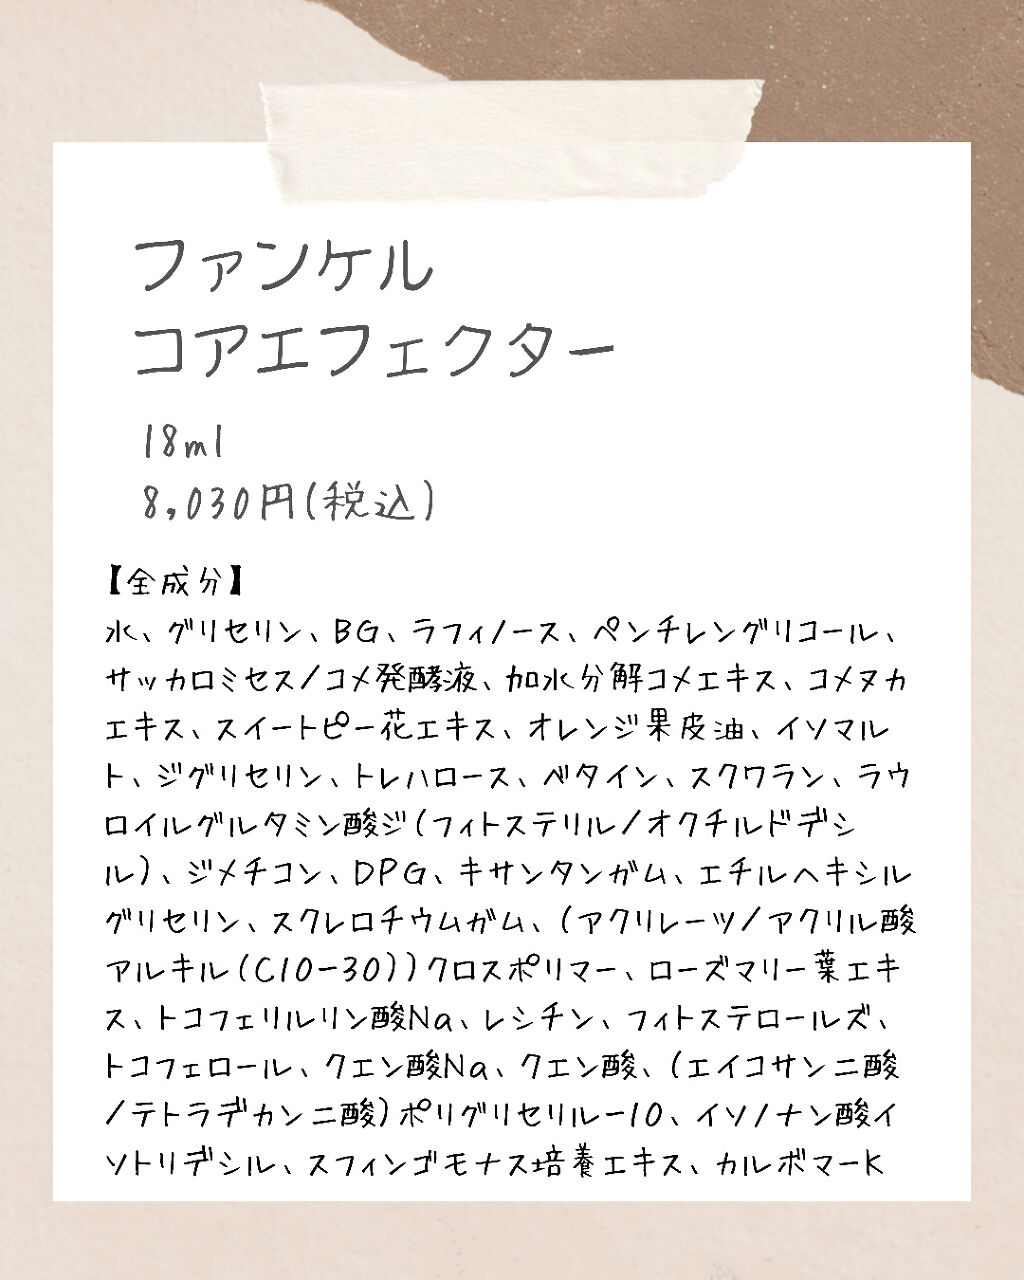 ファンケル
コアエフェクター
18ml
8,030円(税込)
【全成分】
水、グリセリン、BG、ラフィノース、ペンチレングリコール、
サッカロミセス/コメ発酵液、加水分解コメエキス、コメヌカ
エキス、スイートピー花エキス、オレンジ果皮油、イソマル
ト、ジグリセリン、トレハロース、ベタイン、スクワラン、ラウ
ロイルグルタミン酸ジ(フィトステリル/オクチルドデシ
ル)、ジメチコン、DPG、キサンタンガム、エチルヘキシル
グリセリン、スクレロチウムガム、(アクリレーツ/アクリル酸
アルキル(C10-30))クロスポリマー、ローズマリー葉エキ
ス、トコフェリルリン酸Na、レシチン、フィトステロールズ、
トコフェロール、クエン酸Na、クエン酸、(エイコサン二酸
/テトラデカン二酸)ポリグリセリル-10、イソノナン酸イ
ソトリデシル、スフィンゴモナス培養エキス、カルボマーK